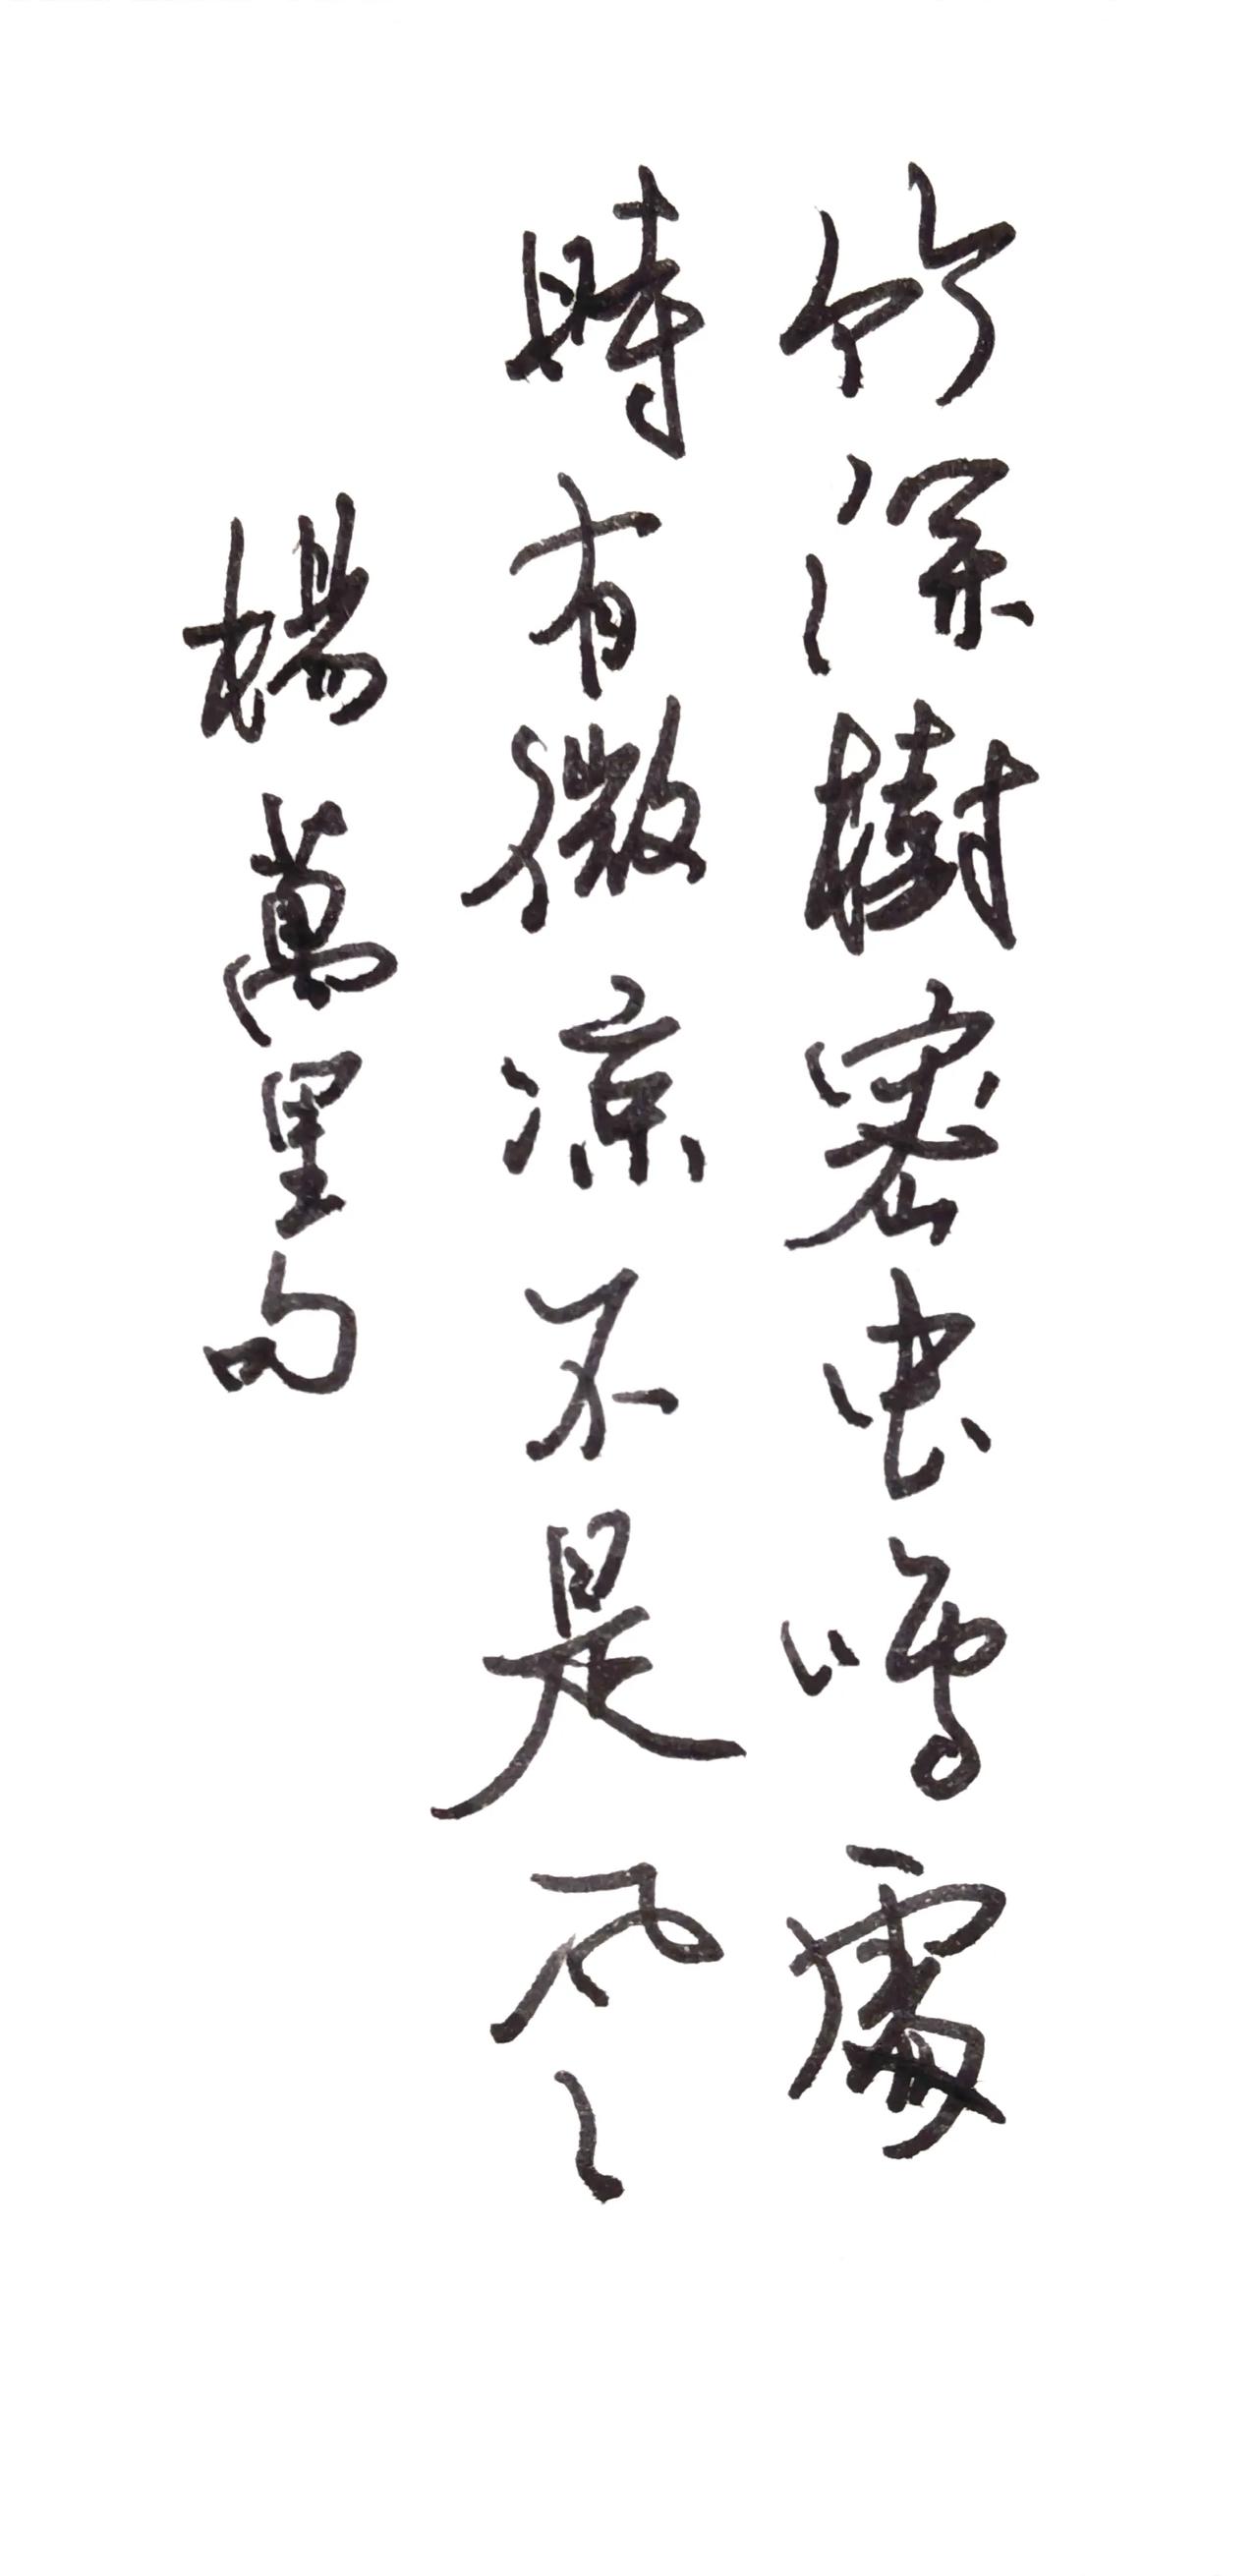 竹深樹密虫鳴處
時有微凉不是风
楊萬里句